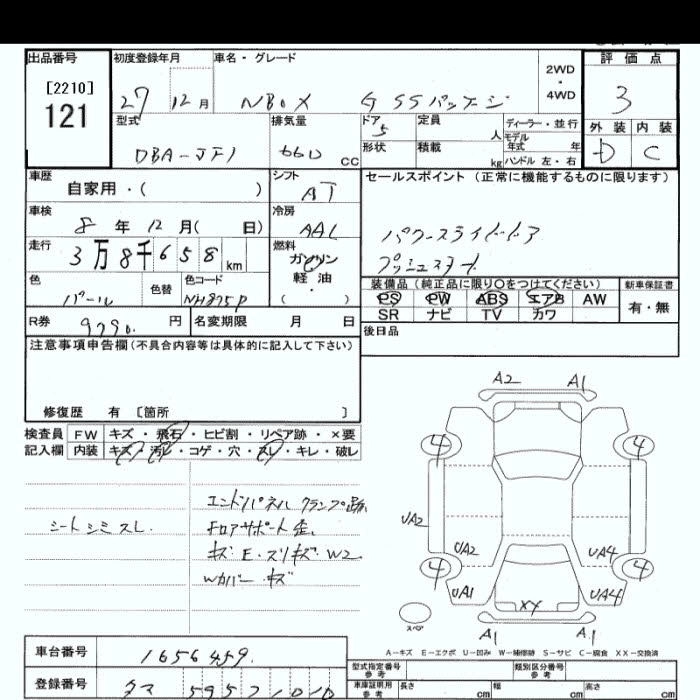 出品番号 初度登録年月 車名・グレード 評価点
[2210] 121
27 12月 NBOX G SSパッケージ 2WD・4WD 3
型式 排気量 ドア 定員 ディーラー・並行 外装 内装
DBA-JF1 660 CC 5 人 モデル年式 年 D C
形状 積載 kg ハンドル 左・右
車歴 シフト セールスポイント (正常に機能するものに限ります)
自家用・( ) AT
車検 冷房
8年 12月( 日) AAC パワースライドドア
走行 燃料 プッシュスタート
3万8千658km ガソリン
軽油・( )
色 色替 色コード 装備品(純正品に限り○をつけてください) 新車保証書
パール NH875P PS PW ABS エアB AW 有・無
SR ナビ TV カワ
R券 9790. 円 名変期限 月 日 後日品
注意事項申告欄(不具合内容等は具体的に記入して下さい)
修復歴 有 [箇所 ]
検査員 FW キズ・飛石・ヒビ割・リペア跡・×要
記入欄 内装 キズ・汚レ・コゲ・穴・スレ・キレ・破レ
シートシミスレ
エンドパネルクランプ跡
フロアサポート歪
キズ E・スリキズ・W2
Wカバー・キズ
A2 A1
4 4
UA2
UA2 UA4
4 4
UA1 UA4
XX
スペア A1 A1
A-キズ E-エクボ U-凹み W-補修跡 S-サビ C-腐食 XX-交換済
車台番号 1656459.
型式指定番号 参考 類別区分番号 参考
登録番号 タマ
車庫証明用 参考 長さ cm 幅 cm 高さ cm